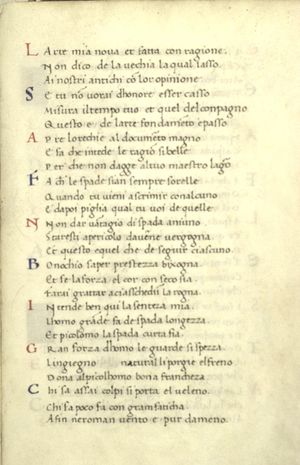 L Arte mia nova et fatta con ragione.
Non dico de la vechia la qual lasso.
Ai nostri antichi cō lor opinione
S E tu nō vorai dhonore esser casso
Misura il tempo tuo et quel del conpagno
Questo e de larte fondamēto e passo
A P re lorechie al documēto magno
E fa che intēde le ragiō si belle
Per che non dagge al tuo maestro lagō
F A ch le spade sian sempre sorelle
Quando tu vieni a scrimir con alcuno
E da poi piglia qual tu voi de quelle
N On dar vātagio di spada aniuno
Staresti a pericolo dauerne vergogna
Et questo e quel che de seguir ciascuno
B Onochio saper prestezza bisogna
Et se la forza el cor con seco sia
Farai grattar a ciaschedū la rogna.
I Ntende ben qui la sentēza mia.
Lhomo grāde fa de spada longezza
Et picolōmo la spada curta fia
G Ran forza dhōmo le guarde si spezza
Lingiegno naturalli porgie el freno
Dona al picolhomo bona francheza
C Hi sa assai colpi si porta el veleno.
Chi sa poco fa con gram fatica
A fin neroman vento e pur dameno.